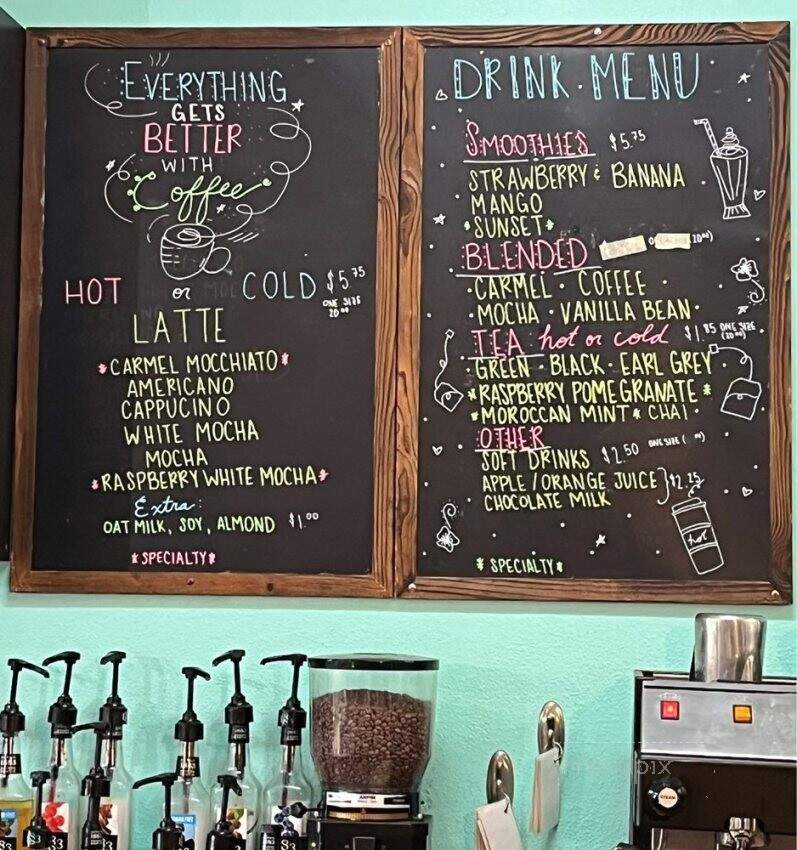 EVERYTHING
GETS
BETTER
WITH
Coffee
HOT or COLD $5.75
ONE SIZE
20oz
LATTE
*CARMEL MOCCHIATO*
AMERICANO
CAPPUCINO
WHITE MOCHA
MOCHA
*RASPBERRY WHITE MOCHA*
Extra:
OAT MILK, SOY, ALMOND $1.00
*SPECIALTY*
DRINK MENU
SMOOTHIES $5.75
STRAWBERRY & BANANA
MANGO
*SUNSET*
BLENDED
·CARMEL · COFFEE ·
·MOCHA · VANILLA BEAN·
TEA hot or cold $1.85 ONE SIZE
(20oz)
·GREEN · BLACK · EARL GREY·
*RASPBERRY POMEGRANATE*
*MOROCCAN MINT * CHAI ·
OTHER
SOFT DRINKS $2.50 ONE SIZE
APPLE / ORANGE JUICE } $2.25
CHOCOLATE MILK
hot
*SPECIALTY*